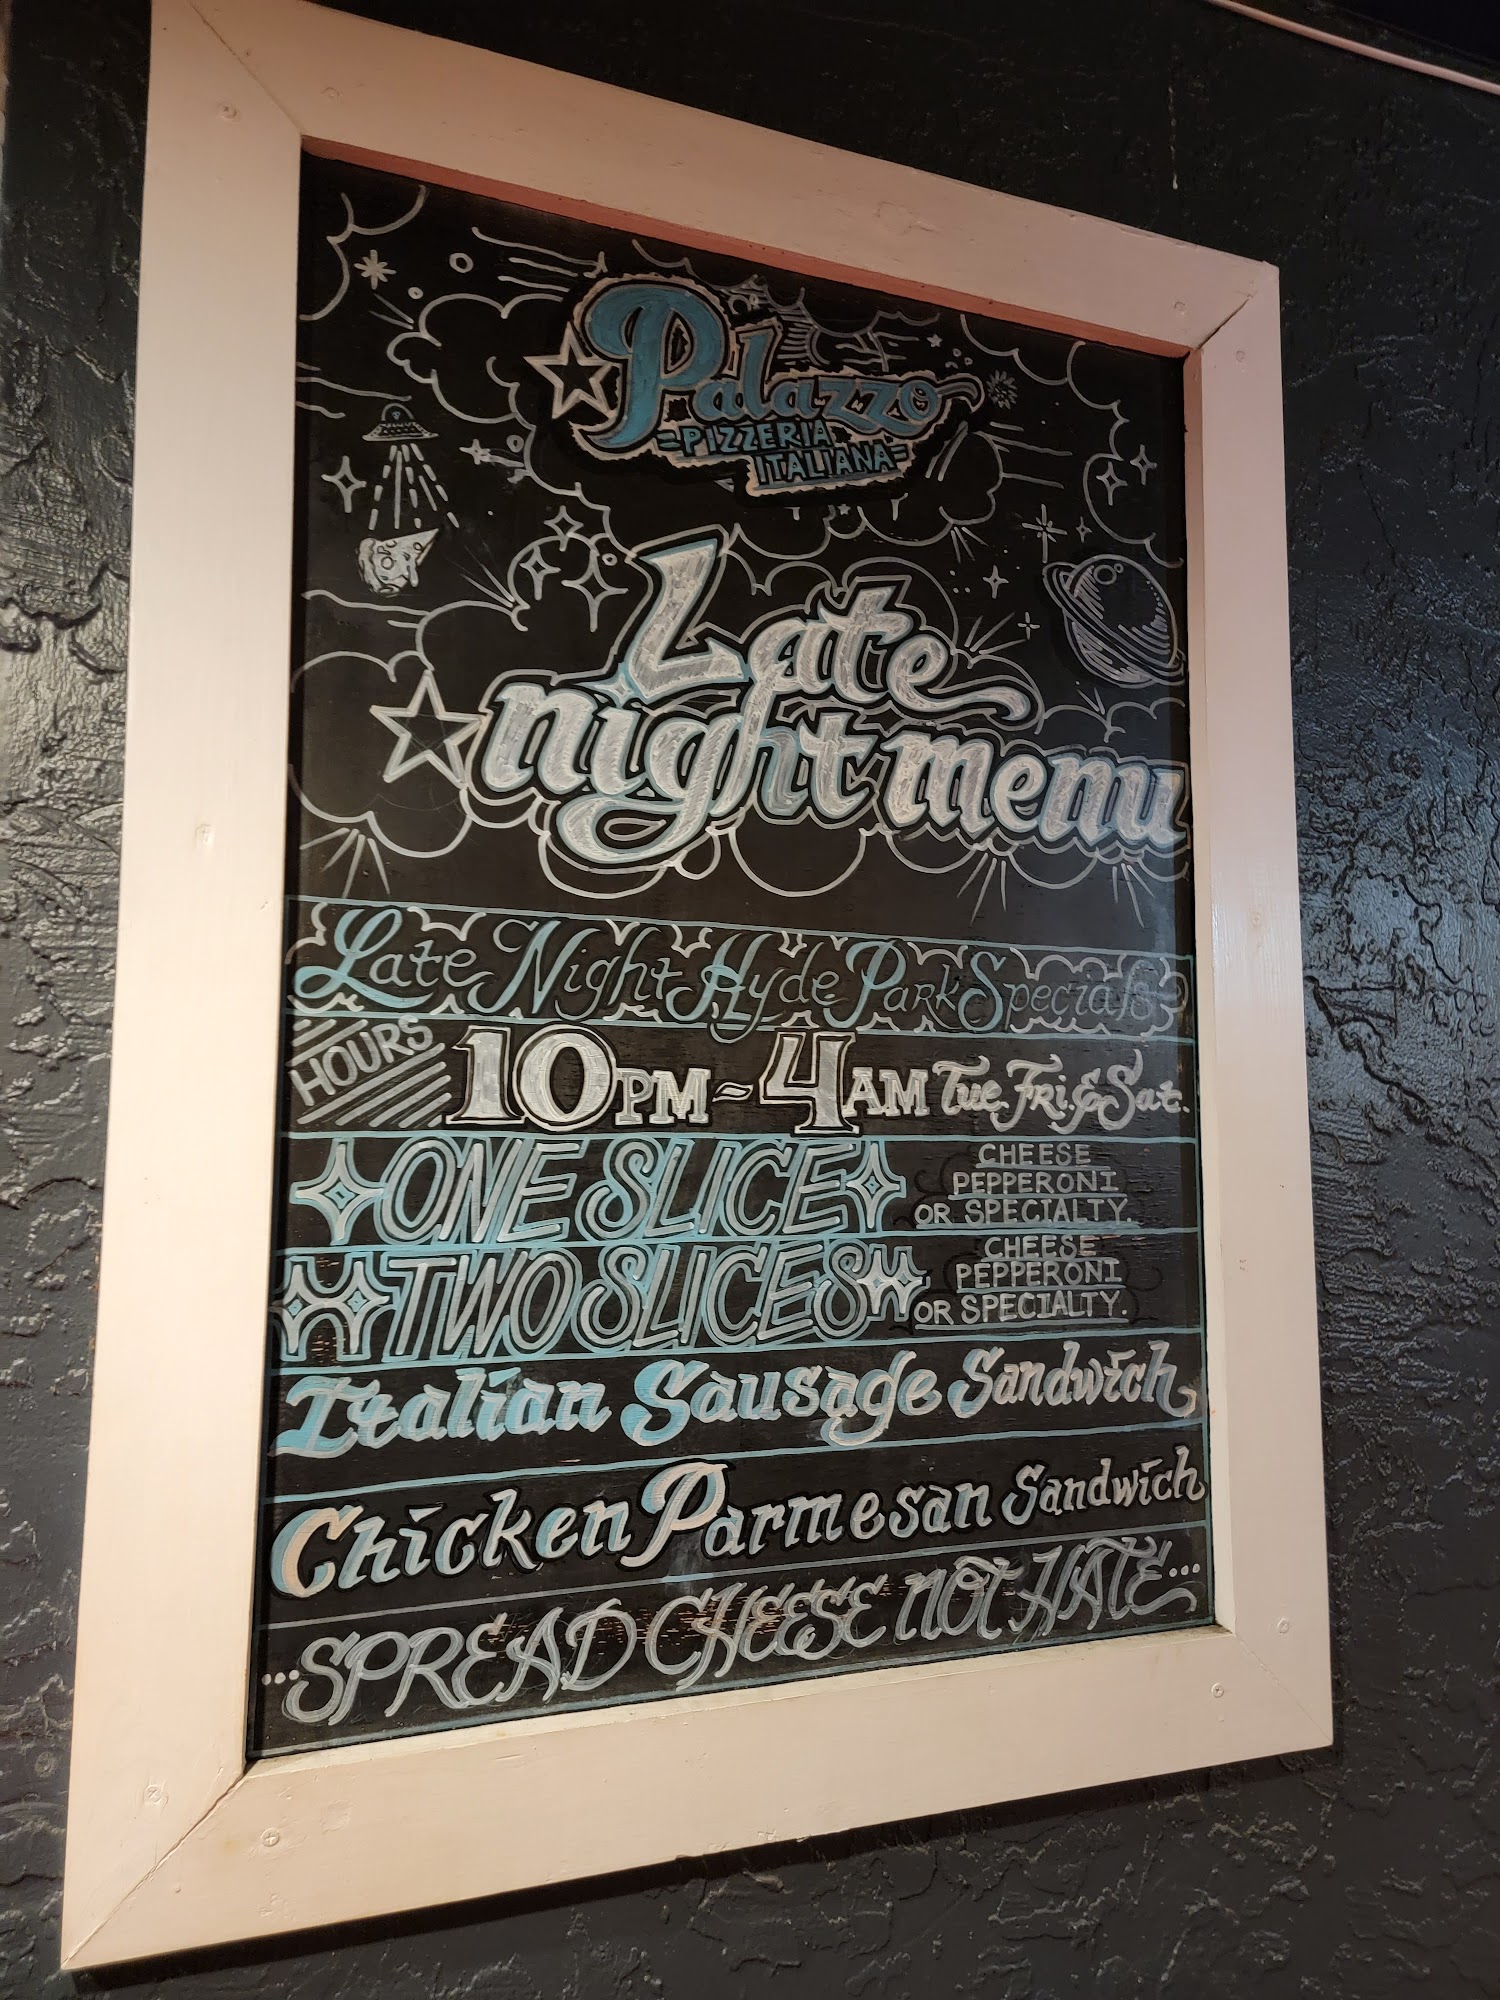 Palazzo
PIZZERIA
ITALIANA
Late
night menu
Late Night Hyde Park Specials
HOURS 10PM-4AM Tue. Fri. & Sat.
ONE SLICE CHEESE
PEPPERONI
OR SPECIALTY.
TWO SLICES CHEESE
PEPPERONI
OR SPECIALTY.
Italian Sausage Sandwich
Chicken Parmesan Sandwich
...SPREAD CHEESE NOT HATE...